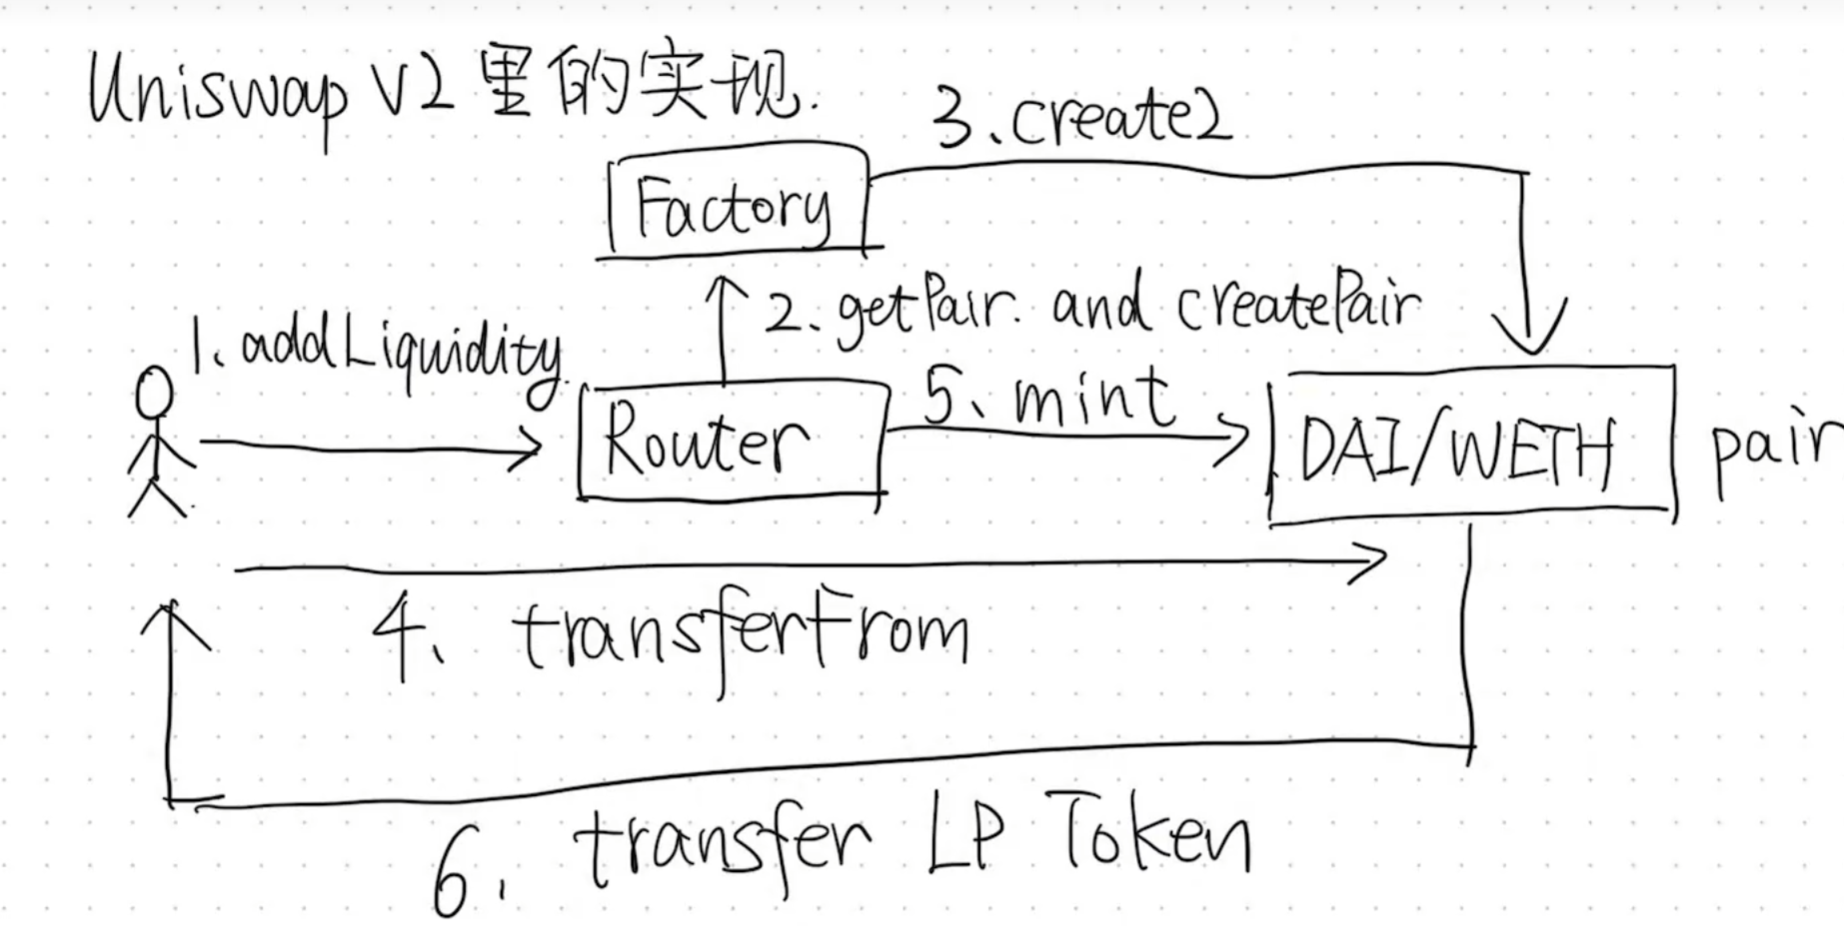 Uniswap V2 里的实现.
3、create2
Factory
2、getPair. and createPair
1、addLiquidity.
5、mint
Router
DAI/WETH
pair
4、transferFrom
6、transfer LP Token